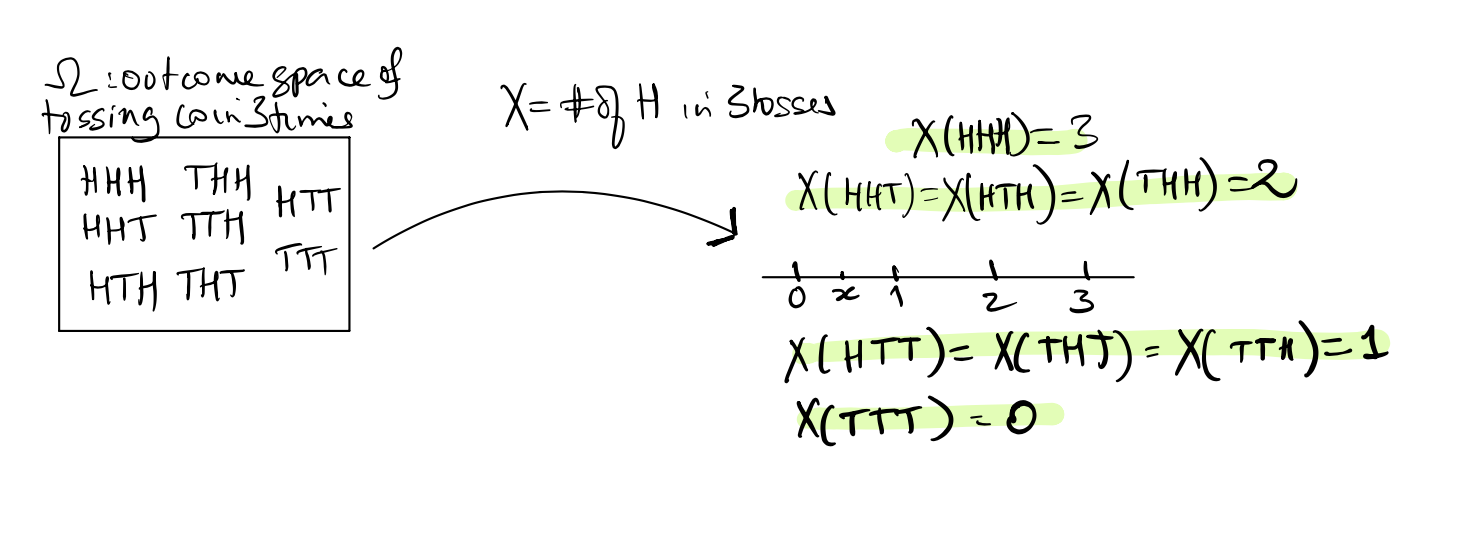 Ω : outcome space of
tossing coin 3 times
HHH THH HTT
HHT TTH
TTT
HTH THT
X = # of H in 3 tosses
X(HHH) = 3
X(HHT) = X(HTH) = X(THH) = 2
0 x 1 2 3
X(HTT) = X(THT) = X(TTH) = 1
X(TTT) = 0